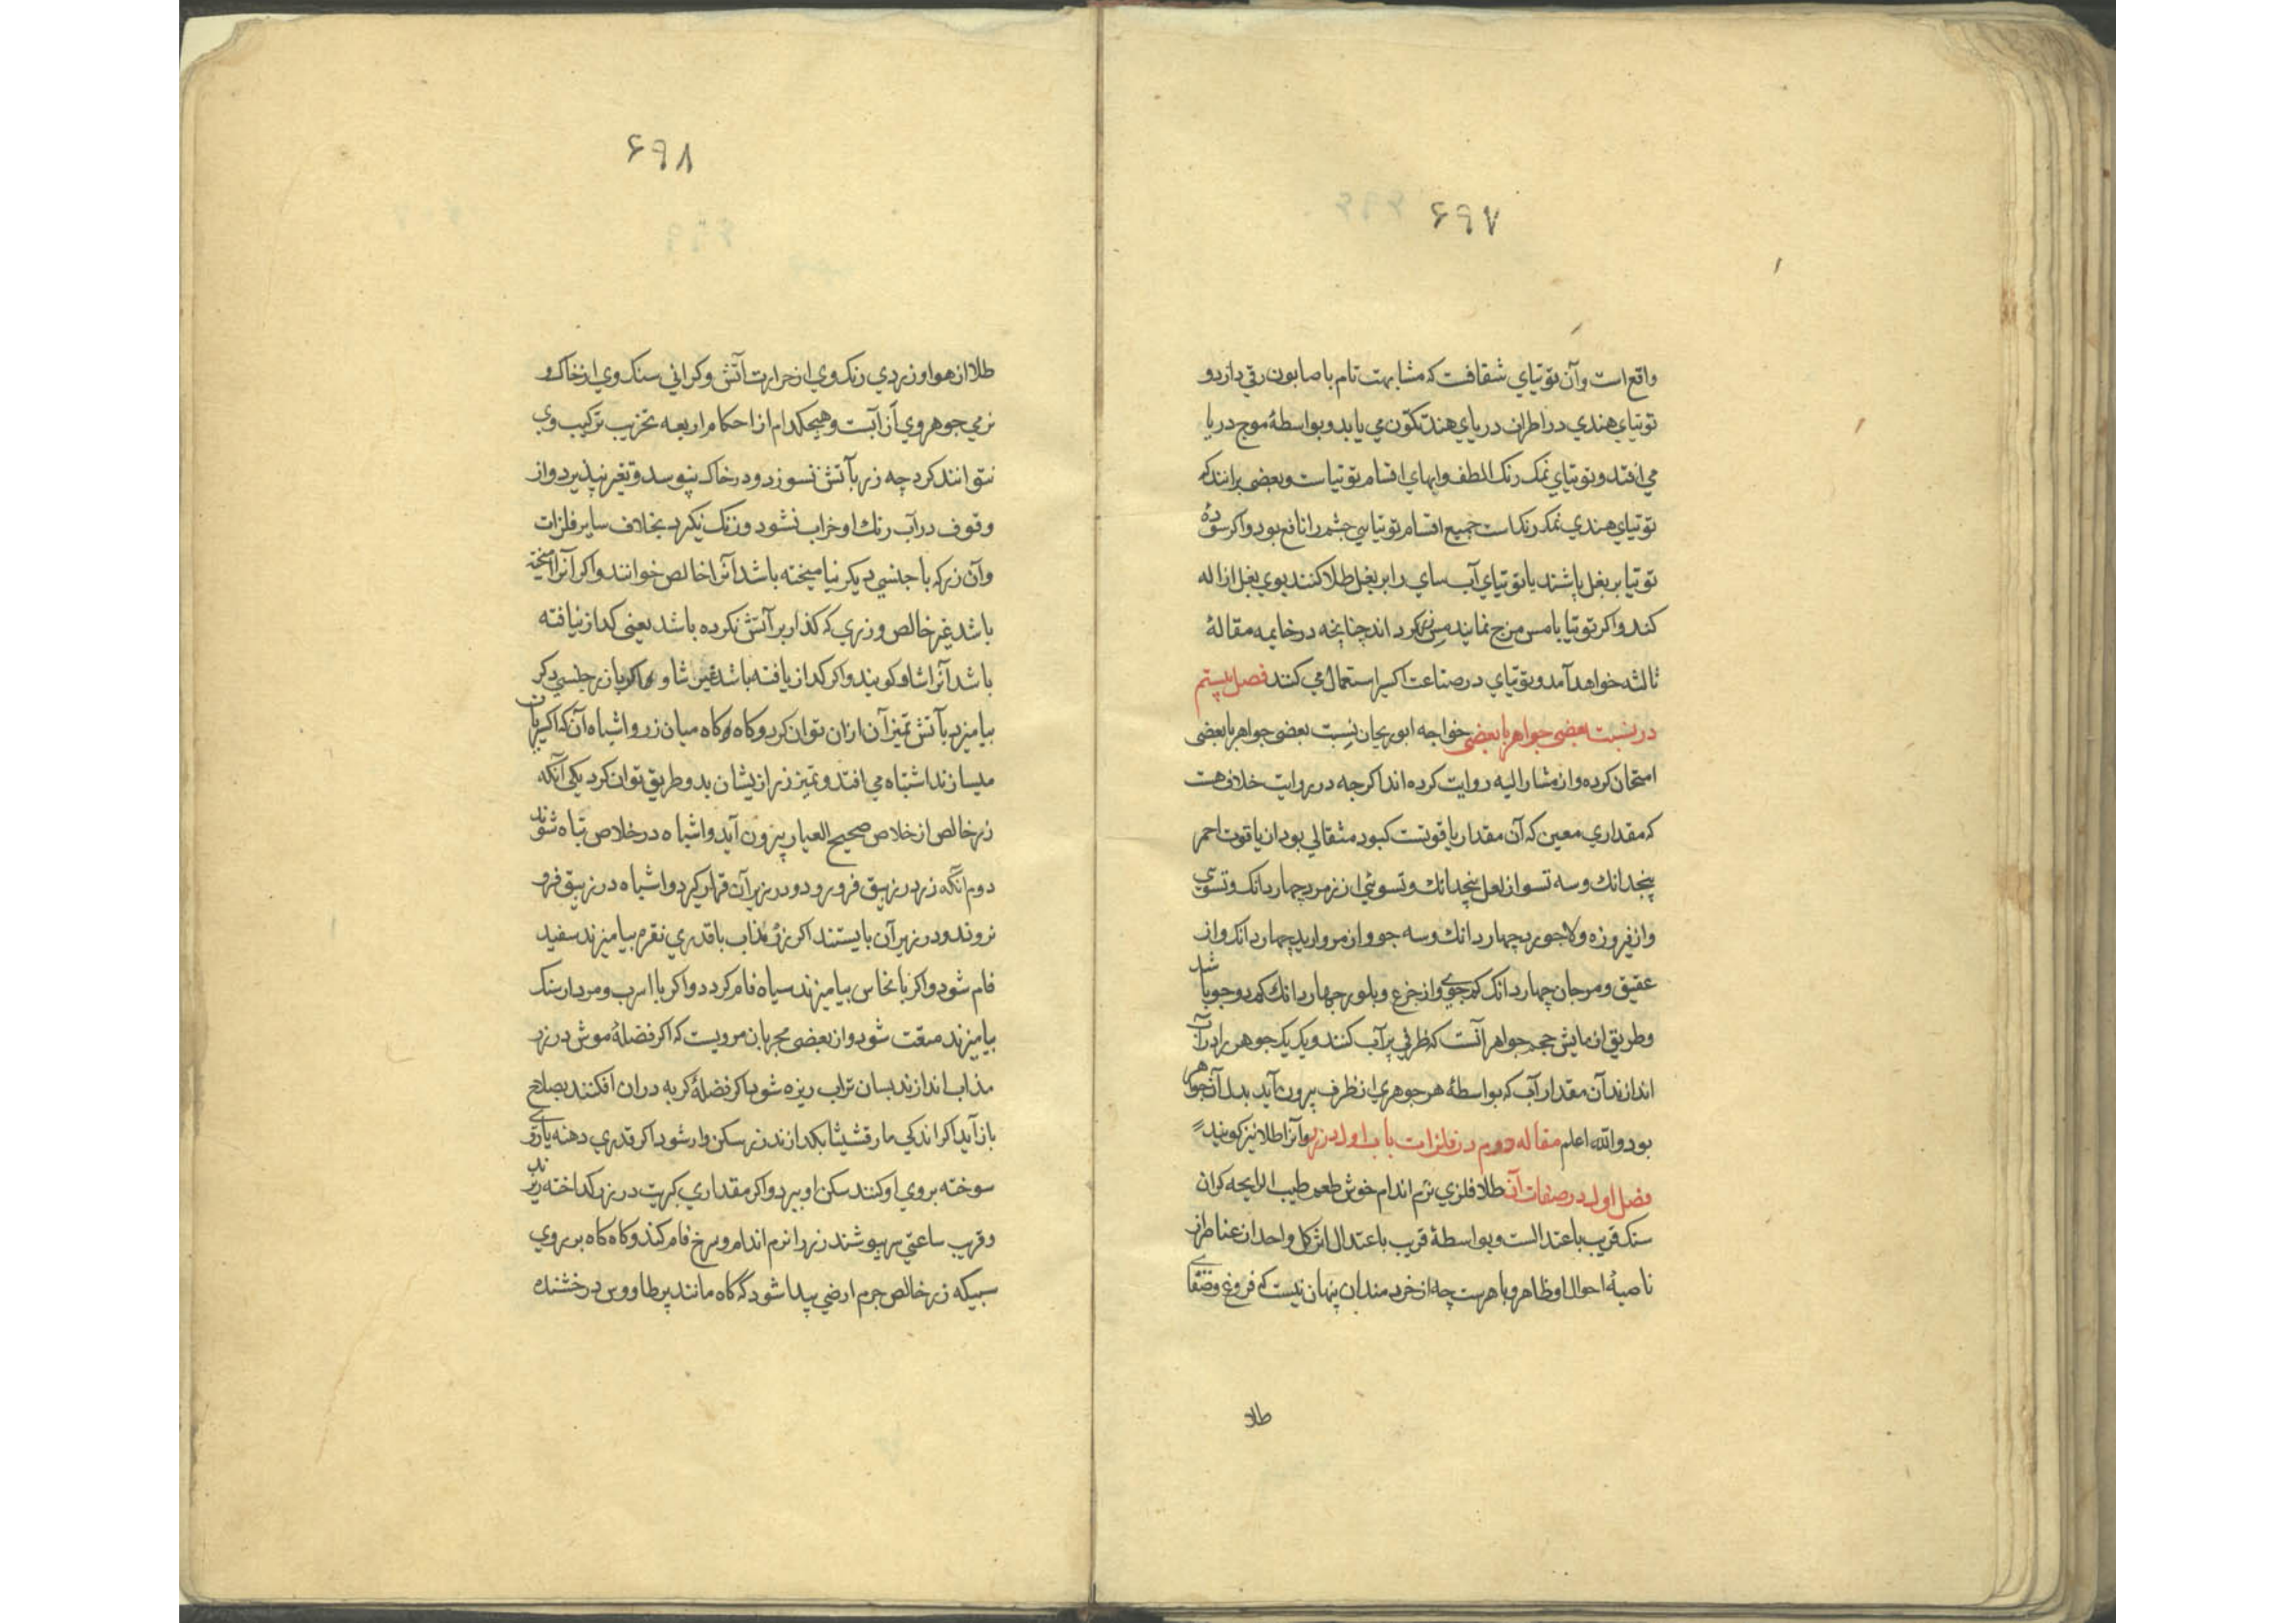 ۶۹۷
واقع است وآن توتیاي شفافست که مشابهت تام با صابون رقي دارد و
توتیاي هندي در اطراف دریاي هند تکون مي یابد و بواسطهٔ موج دریا
مي افتد و توتیاي نمک رنک الطف وابهاي اقسام توتیاست و بعضی برانند که
توتیاي هندي نمک رنک است جمیع اقسام توتیا سي چشم را نافع بود واکر سودهٔ
توتیا بر بغل پاشند یا توتیاي آب ساي را بر بغل طلا کنند بوي بغل ازاله
کند واکر توتیا با مس مزج نمایند مس زر کرداند چنانچه در خاتمه مقالهٔ
ثالثه خواهد آمد و توتیاي در صناعت اکسیر استعمال مي کنند فصل بیستم
در نسبت بعضی جواهر با بعضی خواجه ابوریحان نسبت بعضی جواهر با بعضی
امتحان کرده و از مشارالیه روایت کرده اند اکرچه در روایت خلافی هست
که مقداري معین که آن مقدار یاقوتست کبود مثقالي بود از یاقوت احمر
پنجدانك وسه تسو از لعل پنجدانك وتسوئي از زمرد چهار دانک وتسوي
واز فیروزه ولاجورد چهار دانك وسه جو واز مروارید چهار دانک واز
عقیق ومرجان چهار دانک کم جوي واز جزع وبلور چهار دانك کم دو جو باشد
وطریق ازمایش حجم جواهر آنست که ظرفي پر آب کنند ویک یک جوهر را در آن آب
اندازند آن مقدار آب که بواسطهٔ هر جوهري از ظرف بیرون آید بدل آن جواهر
بود والله اعلم مقاله دوم در فلزات باب اول در زر وآنرا طلا نیز کویند
فصل اول در صفات آن طلا فلزي نرم اندام خوش طعم طیب الرایحه کران
سنک قریب باعتدالست وبواسطهٔ قریب باعتدال اثر کل واحد از عناصر از
ناصیهٔ احوال او ظاهر وباهرست چه از خردمندان پنهان نیست که فروغ وصفاي
طلا
۶۹۸
طلا از هوا وزردي رنک وي از حرارت آتش وکراني سنک وي از خاک و
نرمي جوهر وي از آبست وهیچکدام از احکام اربعه تخریب ترکیب وي
نتوانند کرد چه زر بآتش نسوزد ودر خاک نپوسد وتغیر نپذیرد واز
وقوف در آب رنك او خراب نشود وزنک نکیرد بخلاف سایر فلزات
وآن زر که با جنسي دیکر نیامیخته باشد آنرا خالص خوانند واکر آنرا آمیخته
باشد غیر خالص و زري که کذار بر آتش نکرده باشد یعنی کداز نیافته
باشد آنرا شاو کویند واکر کداز یافته باشد غیر شاو واکر با زر جنسي دیکر
بیامیزد بآتش تمیز آن ازان توان کرد وکاه کاه میان زر واشباه آن که اکسیریان
میسازند اشتباه مي افتد وتمیز زر ازیشان بدو طریق توان کرد یکي آنکه
زر خالص از خلاص صحیح العیار بیرون آید واشباه در خلاص تباه شوند
دوم آنکه زر در زیبق فرو رود ودر زیر آن قرار کیرد واشباه در زیبق فرو
نروند ودر زیر آن بایستند اکر زر مذاب با قدري نقره بیامیزند سفید
فام شود واکر با نحاس بیامیزند سیاه فام کردد واکر با اسرب ومردارسنک
بیامیزند متفتت شود واز بعضي مجربان مرویست که اکر فضلهٔ موش در زر
مذاب اندازند بسان تراب ریزه شود اکر فضلهٔ کربه دران افکنند بصلاح
باز آید اکر اندکي مارقشیثا بکدازند زر سکن وار شود اکر قدري دهنه یا روي
سوخته بروي او کنند سکن او ببرد واکر مقداري کبریت در زر کداخته ریزند
وقریب ساعتي سرپوشند زر را نرم اندام وسرخ فام کند وکاه کاه بر روي
سبیکه زر خالص جرم ارضي پیدا شود که کاه مانند پر طاووس درخشنده